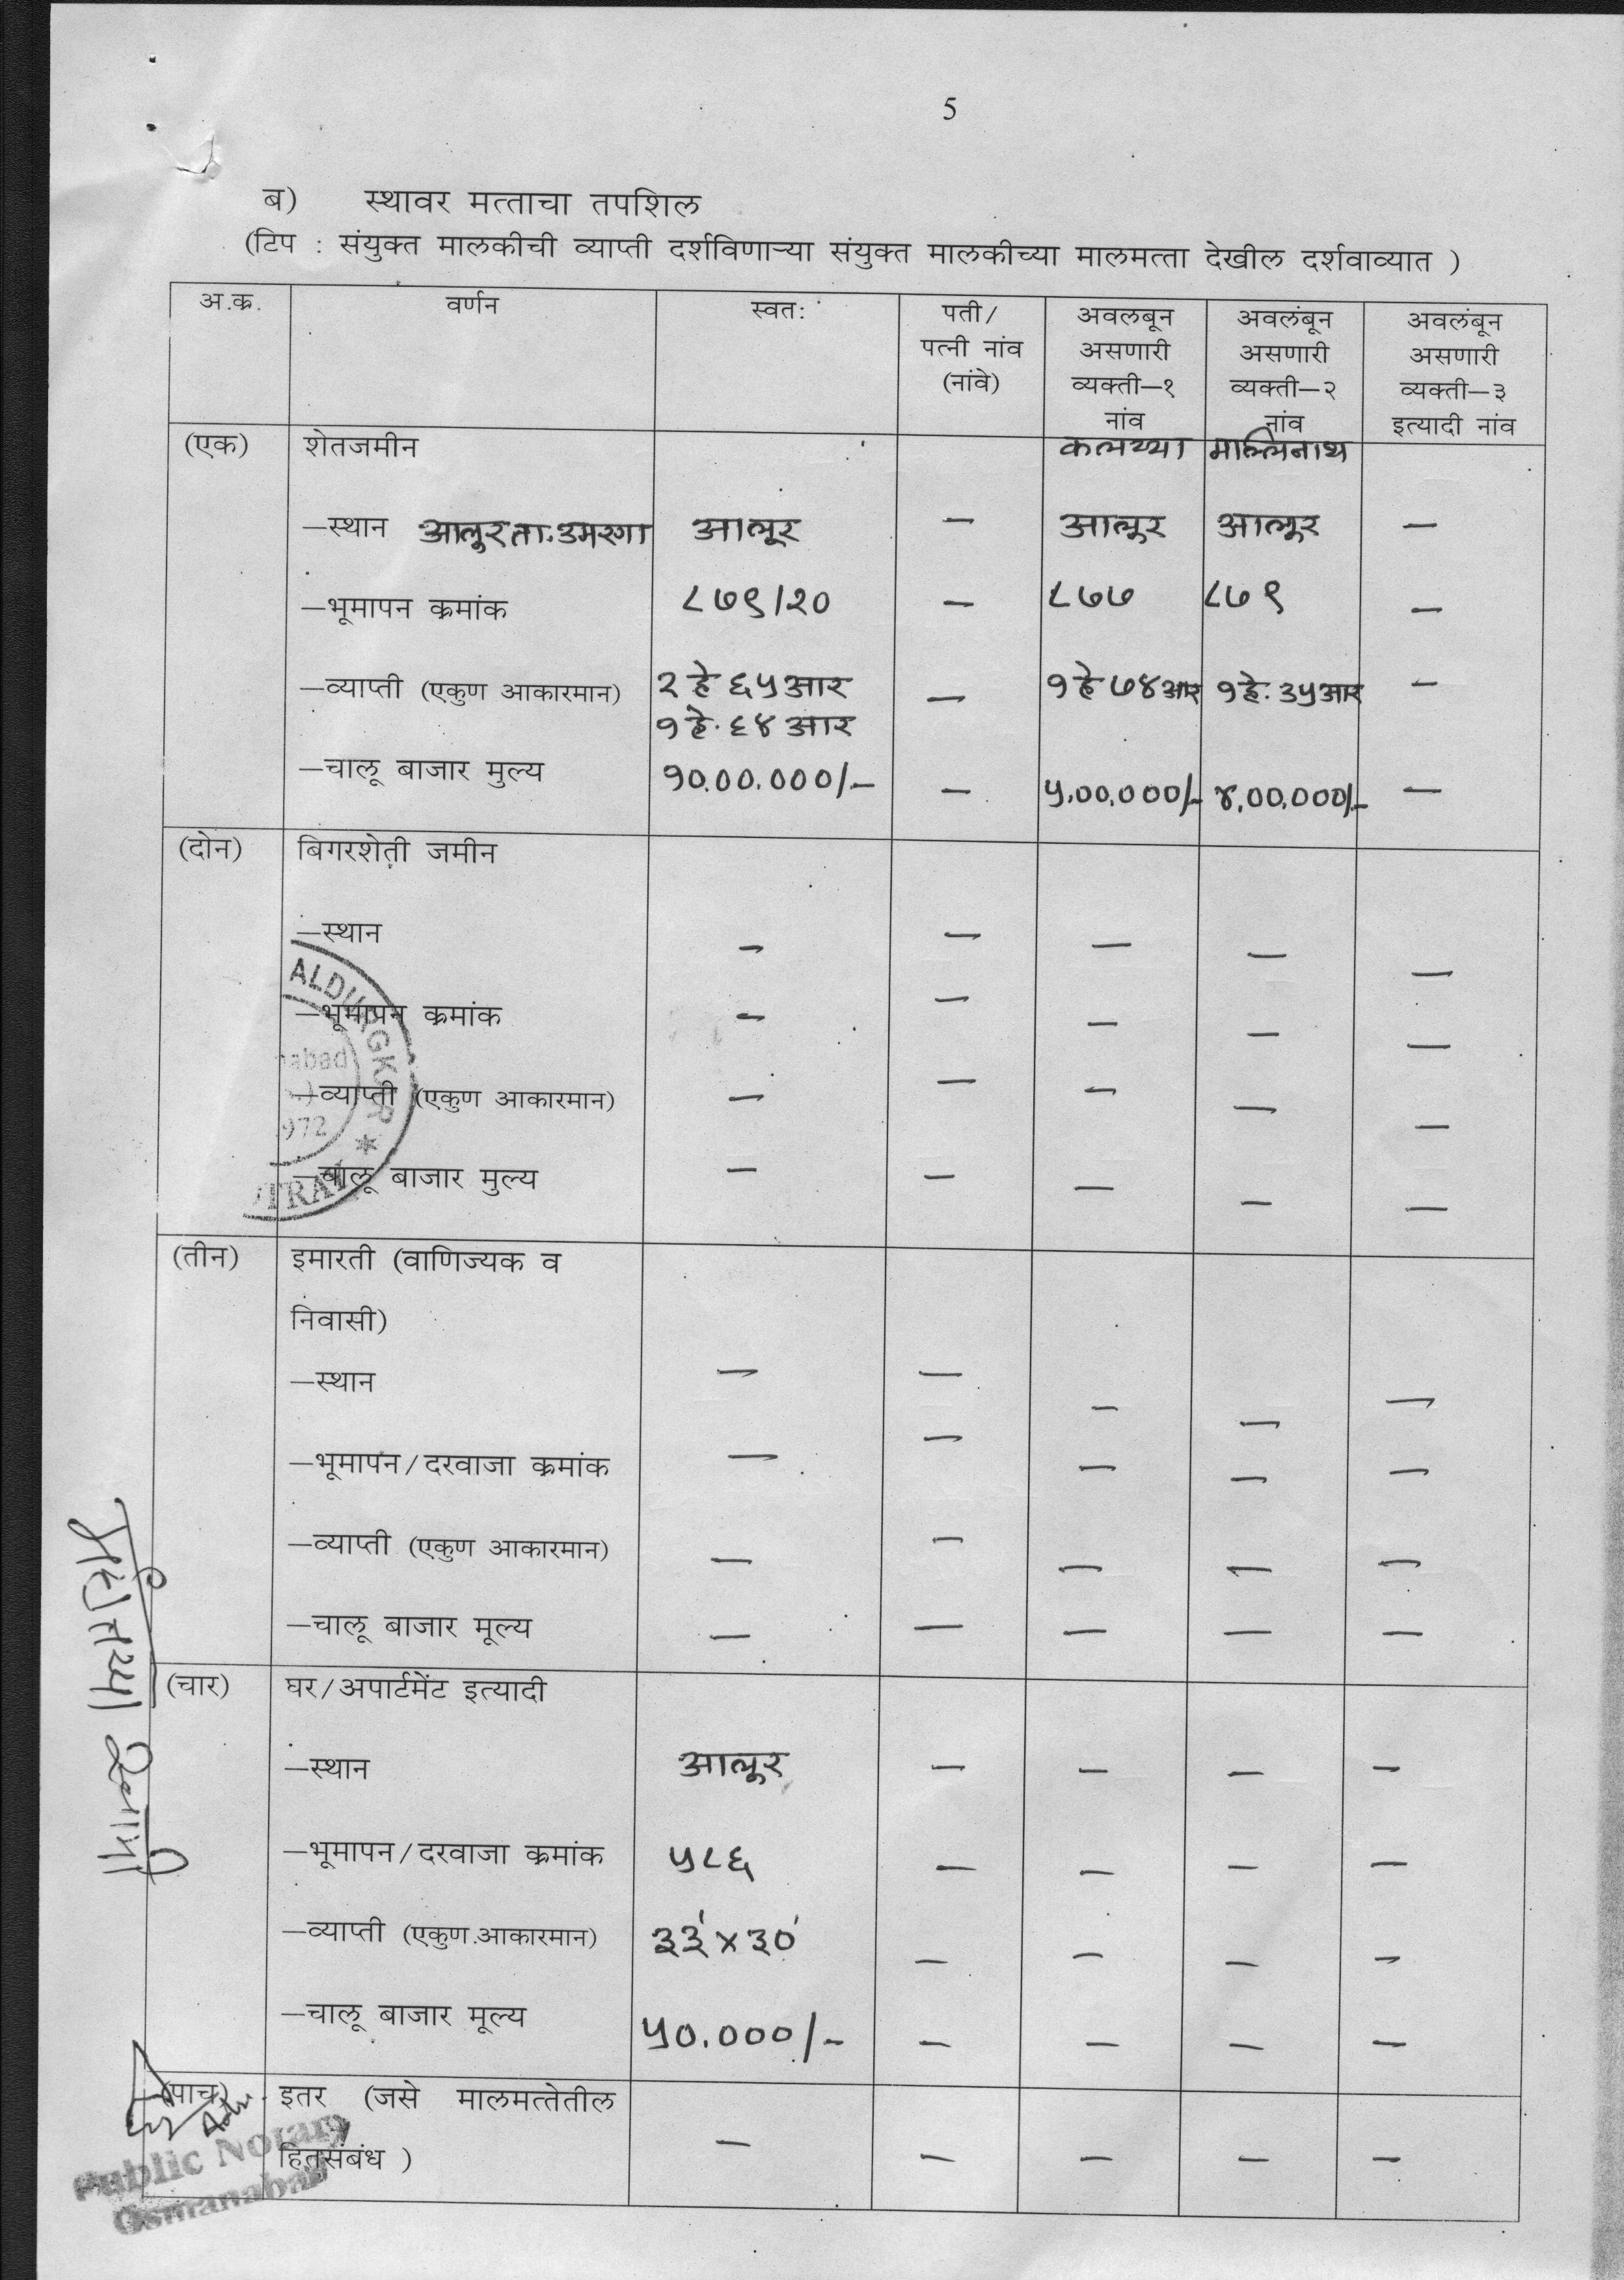 5
ब) स्थावर मत्ताचा तपशिल
(टिप : संयुक्त मालकीची व्याप्ती दर्शविणाऱ्या संयुक्त मालकीच्या मालमत्ता देखील दर्शवाव्यात )
अ.क्र. वर्णन स्वतः पती/ पत्नी नांव (नांवे) अवलबून असणारी व्यक्ती–१ नांव अवलंबून असणारी व्यक्ती–२ नांव अवलंबून असणारी व्यक्ती–३ इत्यादी नांव
(एक) शेतजमीन कलय्या मल्लिनाथ
–स्थान आलुर ता. उमरगा आलूर – आलूर आलूर –
–भूमापन क्रमांक ८७९/२० – ८७७ ८७९ –
–व्याप्ती (एकुण आकारमान) २ हे ६५ आर – १ हे ७४ आर १ हे. ३५ आर –
१ हे. ६४ आर
–चालू बाजार मुल्य १०.००.०००/– – ५.००.०००/– ४.००.०००/– –
(दोन) बिगरशेती जमीन
–स्थान – – – – –
ALDURGKAR
–भूमापन क्रमांक – – – – –
nabad
–व्याप्ती (एकुण आकारमान) – – – – –
972
–चालू बाजार मुल्य – – – – –
(तीन) इमारती (वाणिज्यक व
निवासी)
–स्थान – – – – –
–भूमापन/दरवाजा क्रमांक – – – – –
–व्याप्ती (एकुण आकारमान) – – – – –
–चालू बाजार मूल्य – – – – –
(चार) घर/अपार्टमेंट इत्यादी
–स्थान आलूर – – – –
–भूमापन/दरवाजा क्रमांक ५८६ – – – –
–व्याप्ती (एकुण आकारमान) ३३'×३०' – – – –
–चालू बाजार मूल्य ५०.०००/– – – – –
(पाच) इतर (जसे मालमत्तेतील
हितसंबंध ) – – – – –
Public Notary
Osmanabad